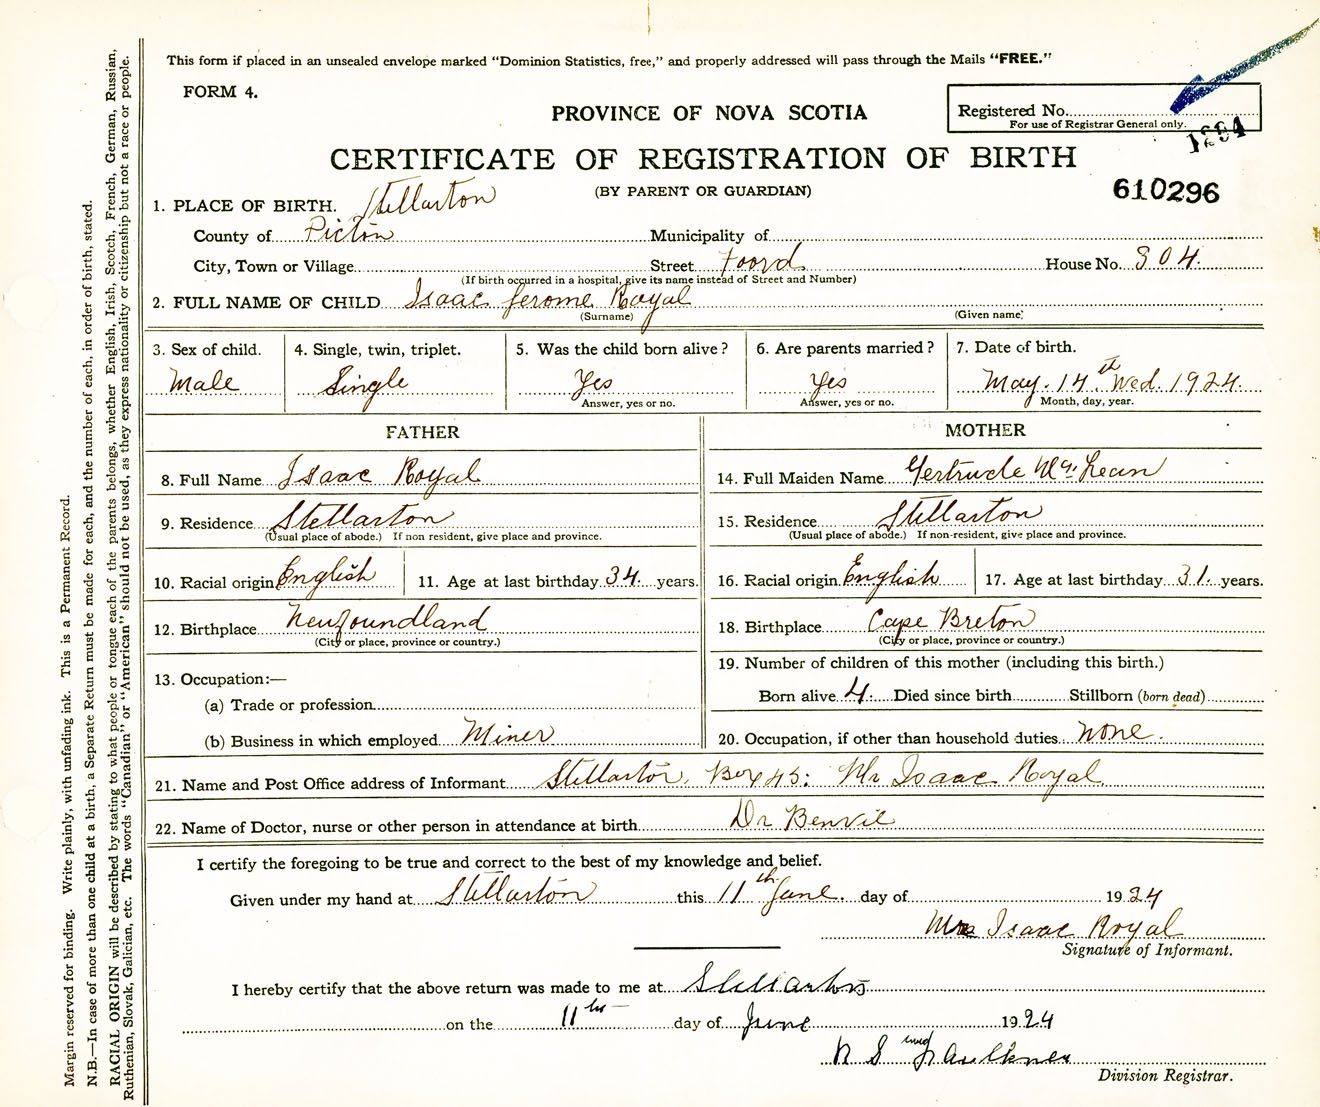 This form if placed in an unsealed envelope marked "Dominion Statistics, free," and properly addressed will pass through the Mails "FREE."
FORM 4.
PROVINCE OF NOVA SCOTIA
Registered No.
For use of Registrar General only.
1294
CERTIFICATE OF REGISTRATION OF BIRTH
(BY PARENT OR GUARDIAN)
610296
1. PLACE OF BIRTH. Stellarton
County of Pictou Municipality of
City, Town or Village Street Foord House No. 304.
(If birth occurred in a hospital, give its name instead of Street and Number)
2. FULL NAME OF CHILD Isaac Jerome Royal
(Surname) (Given name)
3. Sex of child. 4. Single, twin, triplet. 5. Was the child born alive? 6. Are parents married? 7. Date of birth.
Male Single Yes Yes May. 14th Wed. 1924.
Answer, yes or no. Answer, yes or no. Month, day, year.
FATHER
8. Full Name Isaac Royal
9. Residence Stellarton
(Usual place of abode.) If non resident, give place and province.
10. Racial origin English 11. Age at last birthday 34 years.
12. Birthplace Newfoundland
(City or place, province or country.)
13. Occupation:—
(a) Trade or profession
(b) Business in which employed Miner
MOTHER
14. Full Maiden Name Gertrude McLean
15. Residence Stellarton
(Usual place of abode.) If non-resident, give place and province.
16. Racial origin English 17. Age at last birthday 31. years.
18. Birthplace Cape Breton
(City or place, province or country.)
19. Number of children of this mother (including this birth.)
Born alive 4. Died since birth Stillborn (born dead)
20. Occupation, if other than household duties none.
21. Name and Post Office address of Informant Stellarton, Box 45: Mr Isaac Royal
22. Name of Doctor, nurse or other person in attendance at birth Dr Benvie
I certify the foregoing to be true and correct to the best of my knowledge and belief.
Given under my hand at Stellarton this 11th June. day of 1924
Mrs Isaac Royal
Signature of Informant.
I hereby certify that the above return was made to me at Stellarton
on the 11th day of June 1924
Faulkner
Division Registrar.
Margin reserved for binding. Write plainly, with unfading ink. This is a Permanent Record.
N.B.—In case of more than one child at a birth, a Separate Return must be made for each, and the number of each, in order of birth, stated.
RACIAL ORIGIN will be described by stating to what people or tongue each of the parents belongs, whether English, Irish, Scotch, French, German, Russian,
Ruthenian, Slovak, Galician, etc. The words "Canadian" or "American" should not be used, as they express nationality or citizenship but not a race or people.